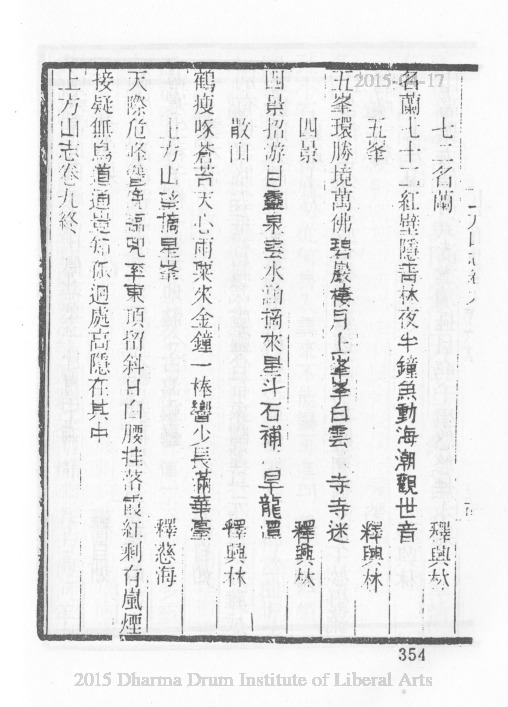 七二名蘭　釋興林
名蘭七十二紅壁隱青林夜半鐘魚動海潮觀世音
五峯　釋興林
五峯環勝境萬佛碧嚴樓月上峯峯白雲寺寺迷
四景　釋興林
四景招游目靈泉雲水涵摘來星斗石補旱龍潭
散山　釋興林
鶴瘦啄蒼苔天心雨粟來金鐘一棒響少長滿華臺
上方山望摘星峯　釋慈海
天際危峰雙東頂招斜日白腰挂落霞紅剩有嵐煙
接疑無鳥道通莫筇依迴處高隱在其中
上方山志卷九終
354
2015-04-17
2015 Dharma Drum Institute of Liberal Arts